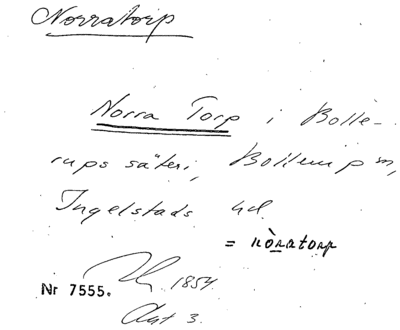 Norratorp
Norra Torp i Bolle-
rups säteri, Bollerup sn,
Ingelstads hd
= nòratorp
1854.
Nr 7555.
Akt 3.